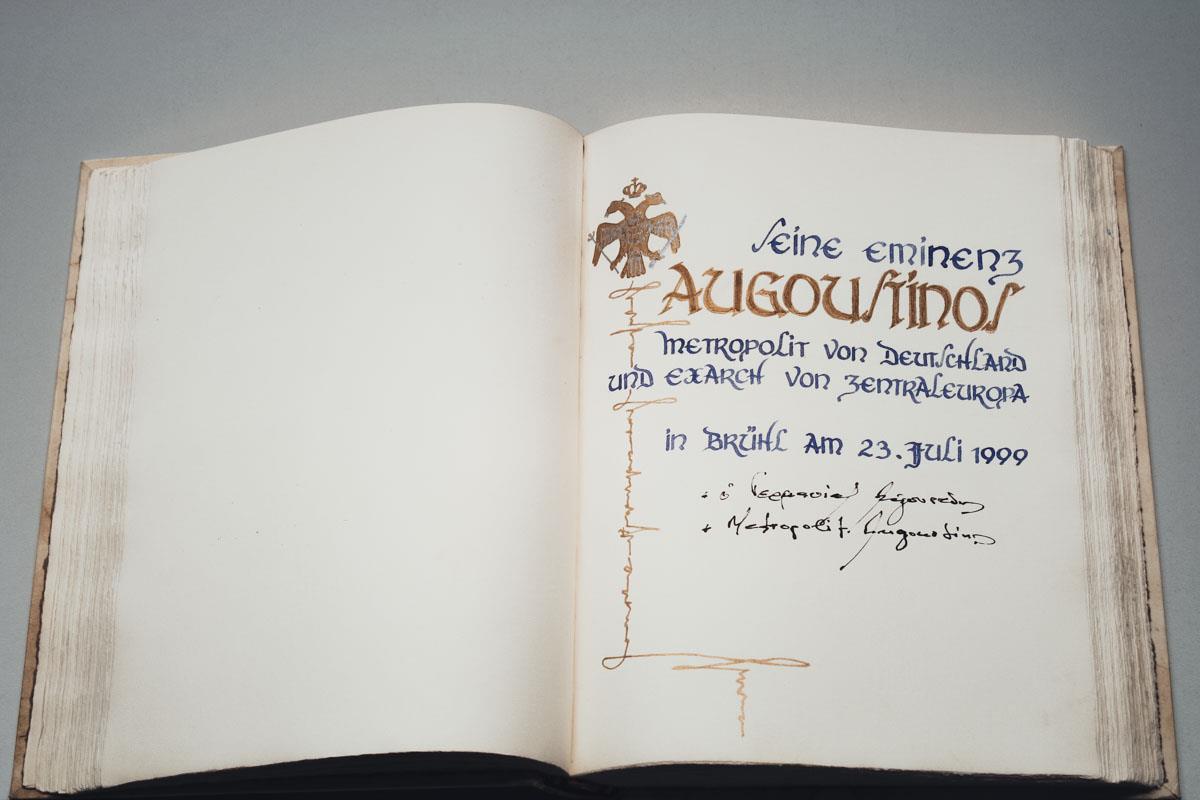 Seine Eminenz
Augoustinos
Metropolit von Deutschland
und Exarch von Zentraleuropa
in Brühl am 23. Juli 1999
+ ὁ Γερμανίας Αὐγουστῖνος
+ Metropolit Augoustinos